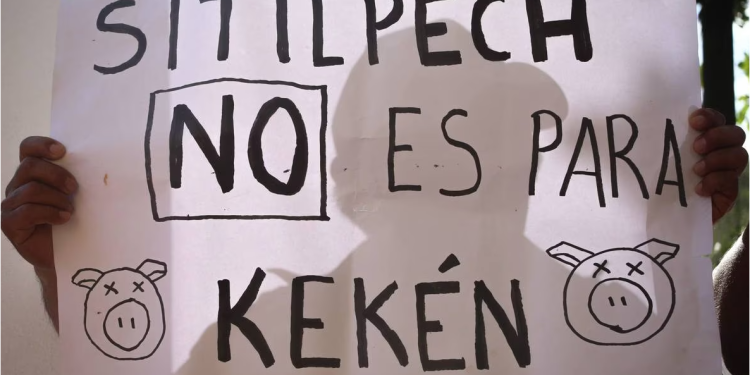 SITILPECH
NO ES PARA
KEKÉN